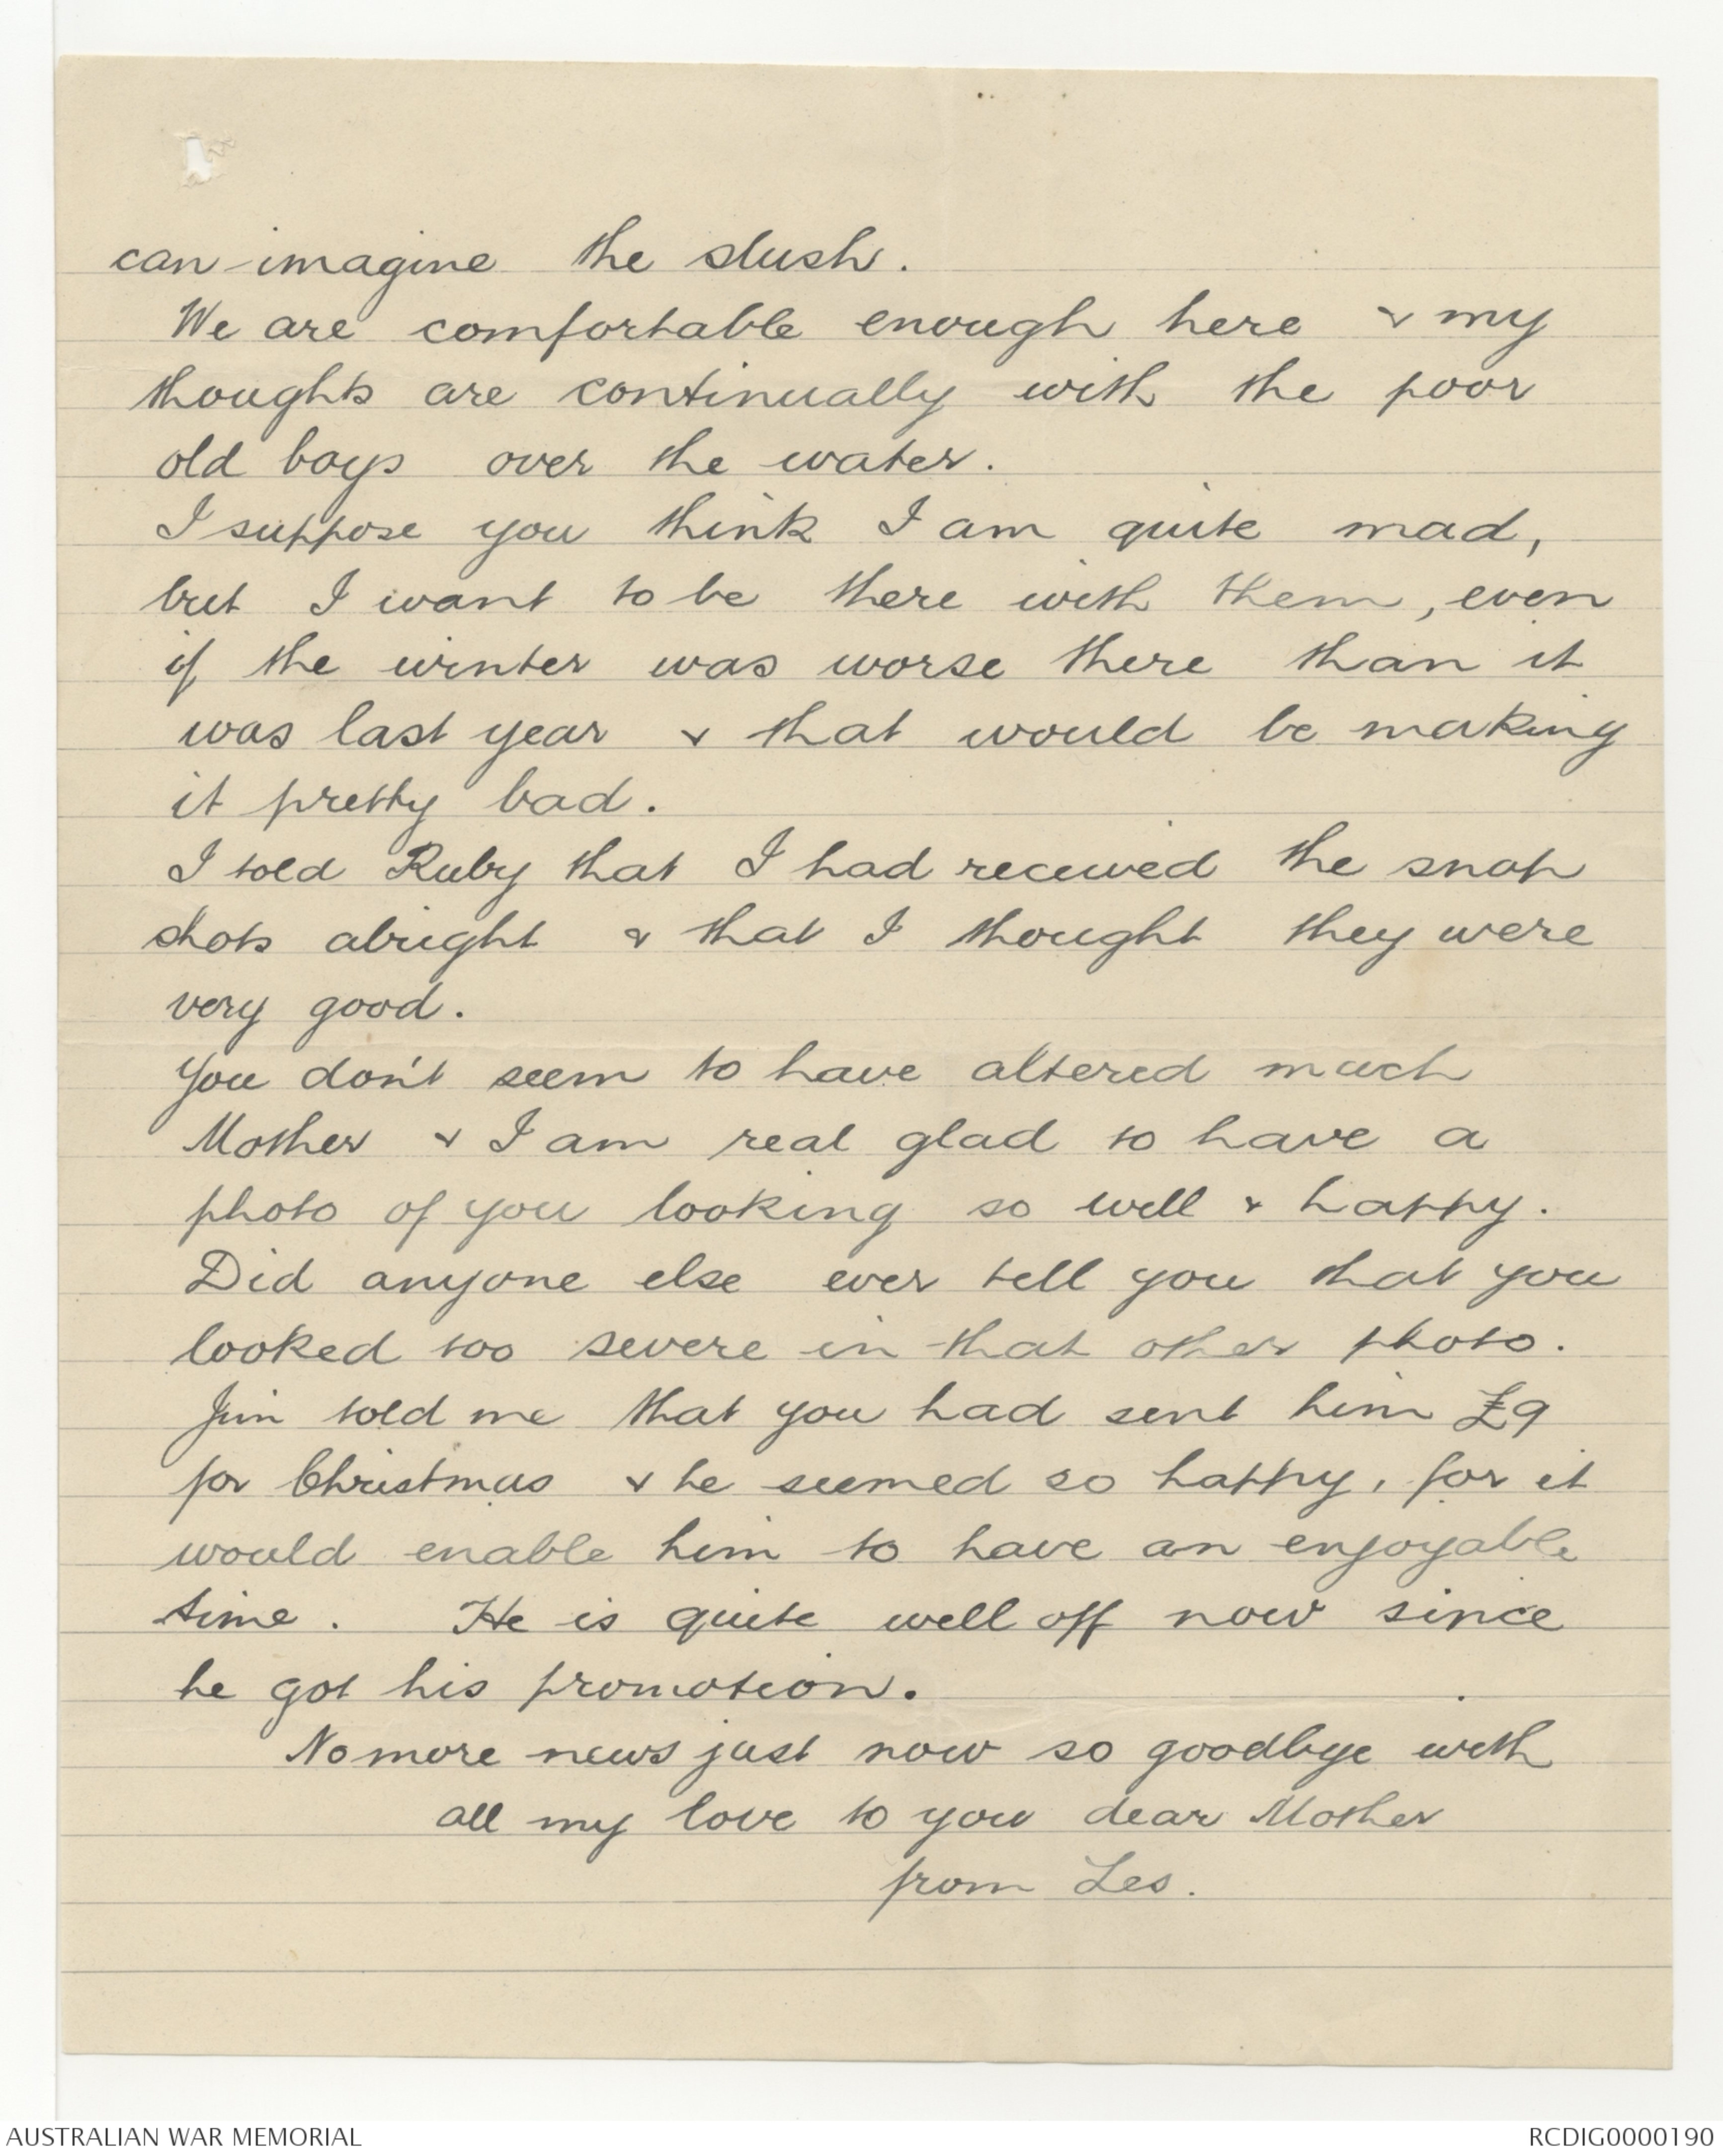 can imagine the slush.
We are comfortable enough here & my
thoughts are continually with the poor
old boys over the water.
I suppose you think I am quite mad,
but I want to be there with them, even
if the winter was worse there than it
was last year & that would be making
it pretty bad.
I told Ruby that I had received the snap
shots alright & that I thought they were
very good.
You don't seem to have altered much
Mother & I am real glad to have a
photo of you looking so well & happy.
Did anyone else ever tell you that you
looked too severe in that other photo.
Jim told me that you had sent him £9
for Christmas & he seemed so happy, for it
would enable him to have an enjoyable
time. He is quite well off now since
he got his promotion.
No more news just now so goodbye with
all my love to you dear Mother
from Les.
AUSTRALIAN WAR MEMORIAL
RCDIG0000190